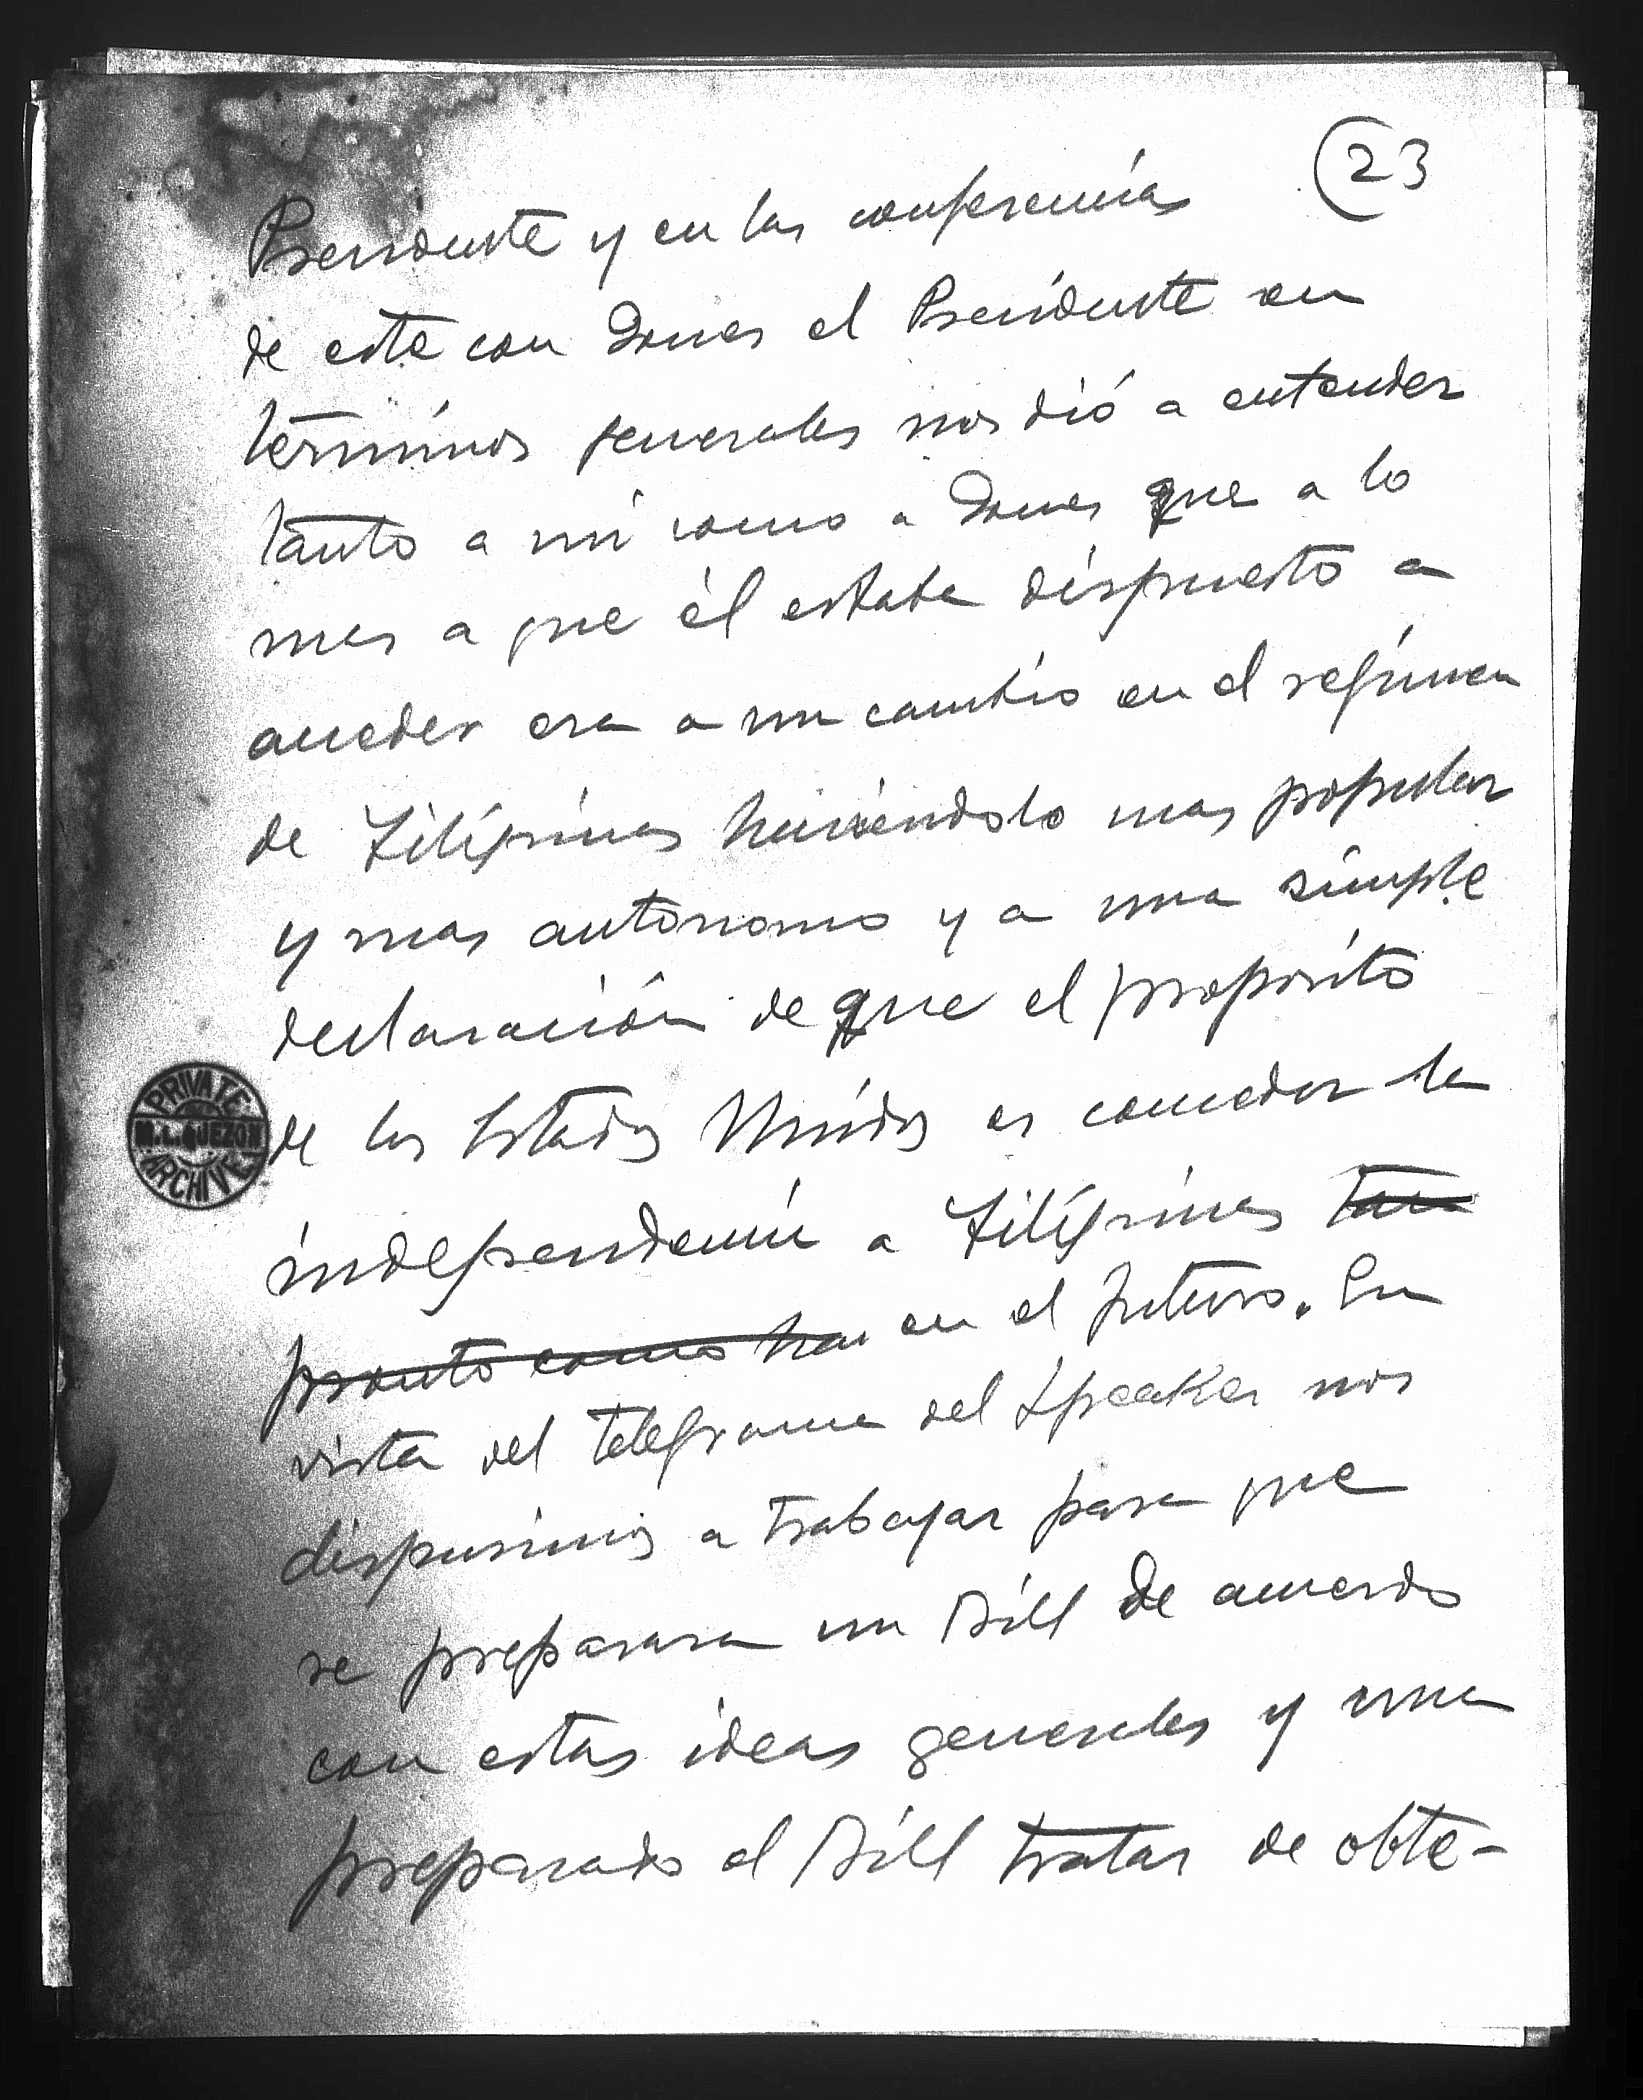 (23
Presidente y en las conferencias
de este con Jones el Presidente en
términos generales nos dió a entender
tanto a mi como a Jones que a lo
mas a que él estaba dispuesto a
acceder era a un cambio en el regimen
de Filipinas haciéndolo mas popular
y mas autonomo y a una simple
declaración de que el proposito
de los Estados Unidos es conceder la
PRIVATE
M.L. QUEZON
ARCHIVE
independencia a Filipinas tan
pronto como hai en el futuro. En
vista del telegrama del Speaker nos
dispusimos a trabajar para que
se preparara un Bill de acuerdo
con estas ideas generales y una
preparado el Bill tratar de obte-